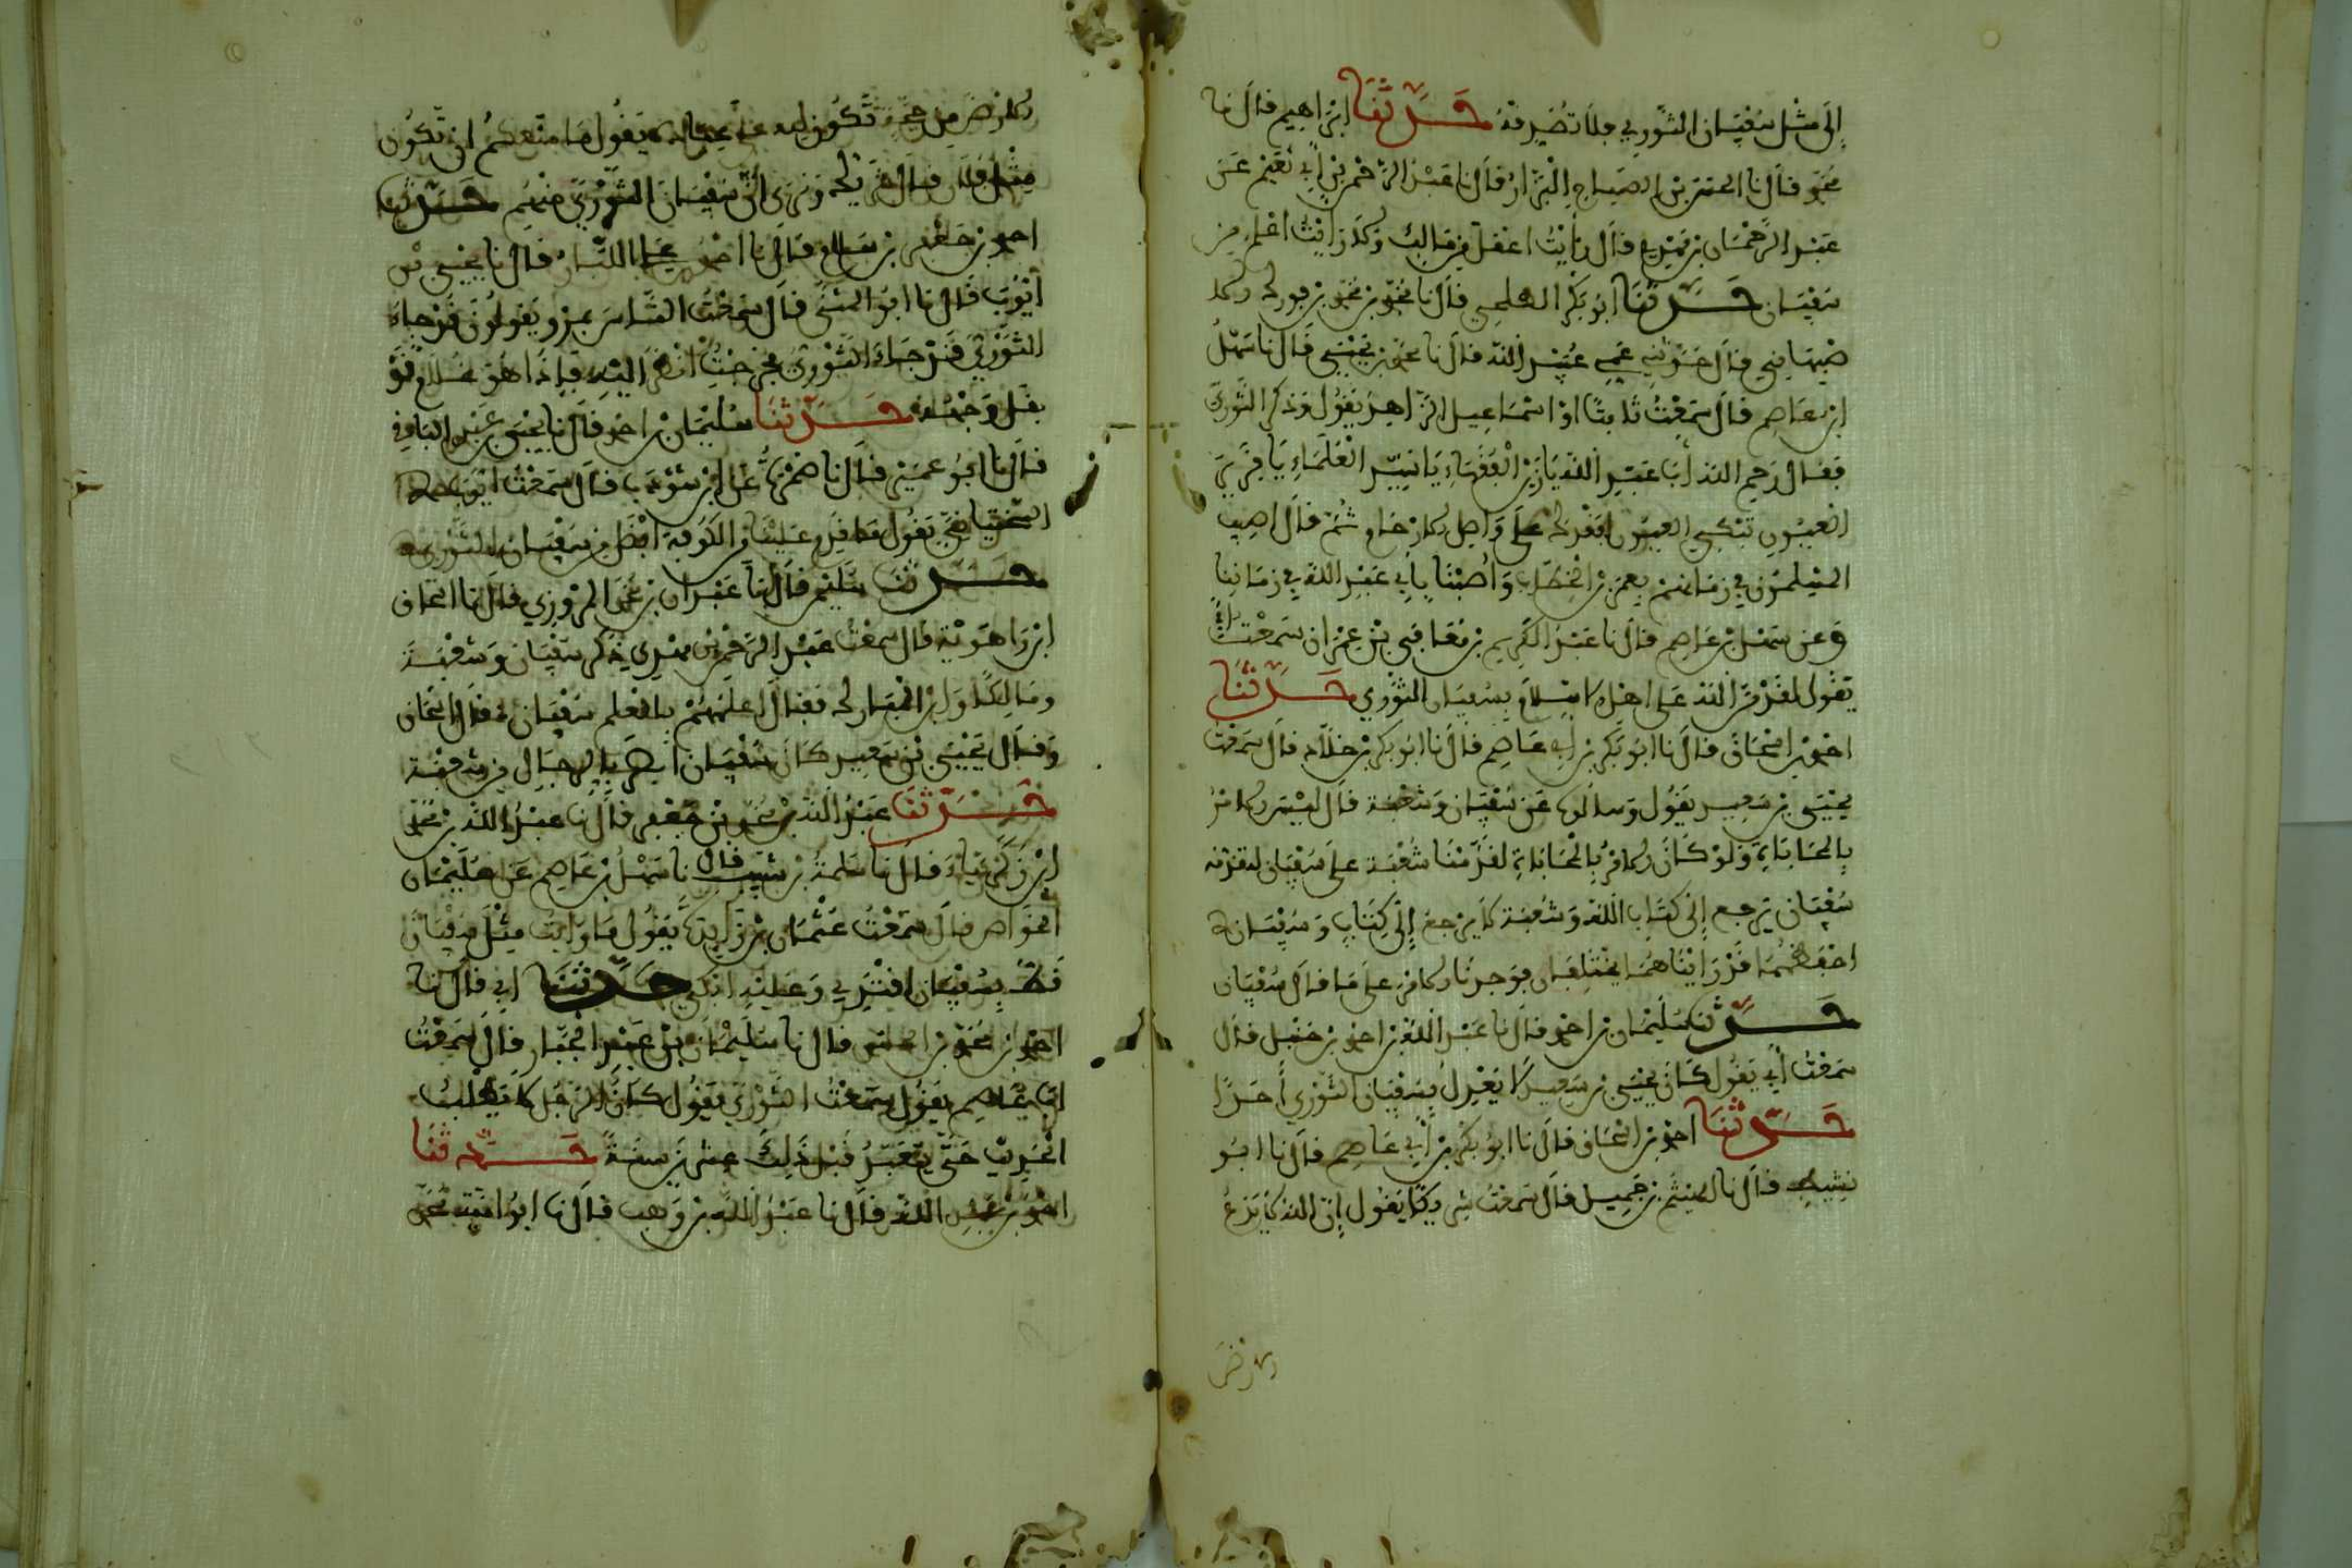 إلى مثل سفيان الثوري فلا تصدقه حدثنا إبراهيم قال نا
محمد قال نا الحسن بن الصباح البزار قال نا عبد الرحمن بن أبي نعيم عن
عبد الرحمان بن مهدي قال رأيت اعقل من مالك وكان انت اعلم من
سفيان حدثنا ابو بكر الطلحي قال نا محمد بن محمد بن فورك وكان
قال حدثني عمي عبيد الله قال نا محمد بن يحيى قال نا سهل
ابن عاصم قال سمعت ثابتا او اسماعيل الزاهد يقول وذكر الثوري
فقال رحم الله أبا عبد الله يا زين الفقهاء يا سيد العلماء يا قرير
العيون تبكي العيون لفقدك على واصل ثم قال اصيب
المسلمون في زمانهم بعمر بن الخطاب وأصبنا بأبي عبد الله في زماننا
وعن سهل بن عاصم قال نا عبد الكريم بن معافى بن عمران سمعت
يقول لقد من الله على اهل الاسلام بسفيان الثوري حدثنا
احمد بن اسحاق قال نا ابو بكر بن أبي عاصم قال نا ابو بكر بن خلاد قال سمعت
يحيى بن سعيد يقول وسألوه عن سفيان وشعبة قال ليس الامر
بالمحاباة ولو كان الامر بالمحاباة لقدمنا شعبة على سفيان لتقدمه
سفيان يرجع إلى كتاب الله وشعبة لا يرجع إلى كتاب وسفيان
احفظهما قد رأيناهما يختلفان فوجدنا الامر على ما قال سفيان
حدثنا سليمان بن احمد قال نا عبد الله بن احمد بن حنبل قال
سمعت أبي يقول كان يحيى بن سعيد لا يعدل بسفيان الثوري أحدا
حدثنا احمد بن اسحاق قال نا ابو بكر بن أبي عاصم قال نا ابو
قال نا الهيثم بن جميل قال سمعت شريكا يقول إن الله لا يدع
الارض
الارض من حجة تكون لله على عباده يقول ما منعكم ان تكون
مثل فلان قال شريك ونرى أن سفيان الثوري منهم حدثنا
احمد بن جعفر بن سلم قال نا احمد بن علي الأبار قال نا يحيى بن
أيوب قال نا ابو المثنى قال سمعت الناس بمرو يقولون قد جاء
الثوري قد جاء الثوري فخرجت انظر اليه فإذا هو غلام قد
بقل وجهه حدثنا سليمان بن احمد قال نا يحيى بن عبد الباقي
قال نا ابو عمير قال نا ضمرة عن ابن شوذب قال سمعت ايوب
السختياني يقول ما قدم علينا من الكوفة افضل من سفيان الثوري
حدثنا سليمن قال نا عبدان بن محمد المروزي قال نا اسحاق
ابن راهويه قال سمعت عبد الرحمن بن مهدي ذكر سفيان وشعبة
ومالكا وابن المبارك فقال اعلمهم بالعلم سفيان قال اسحاق
وقال يحيى بن سعيد كان سفيان ابصر بالرجال من شعبة
حدثنا عبد الله بن محمد بن جعفر قال نا عبد الله بن محمد
ابن زكرياء قال نا سلمة بن شبيب قال نا سهل بن عاصم عن سليمان
الخواص قال سمعت عثمان بن زائدة يقول ما رأيت مثل سفيان
قط بسفيان اقتدي وعليه ابكي حدثنا ابي قال نا
احمد بن محمد بن قال نا سليمان بن عبد الجبار قال سمعت
ابا عاصم يقول سمعت الثوري يقول كان الرجل لا يطلب
الحديث حتى يتعبد قبل ذلك عشرين سنة حدثنا
احمد بن عبد الله قال نا عبد الله بن وهب قال نا ابو امية محمد